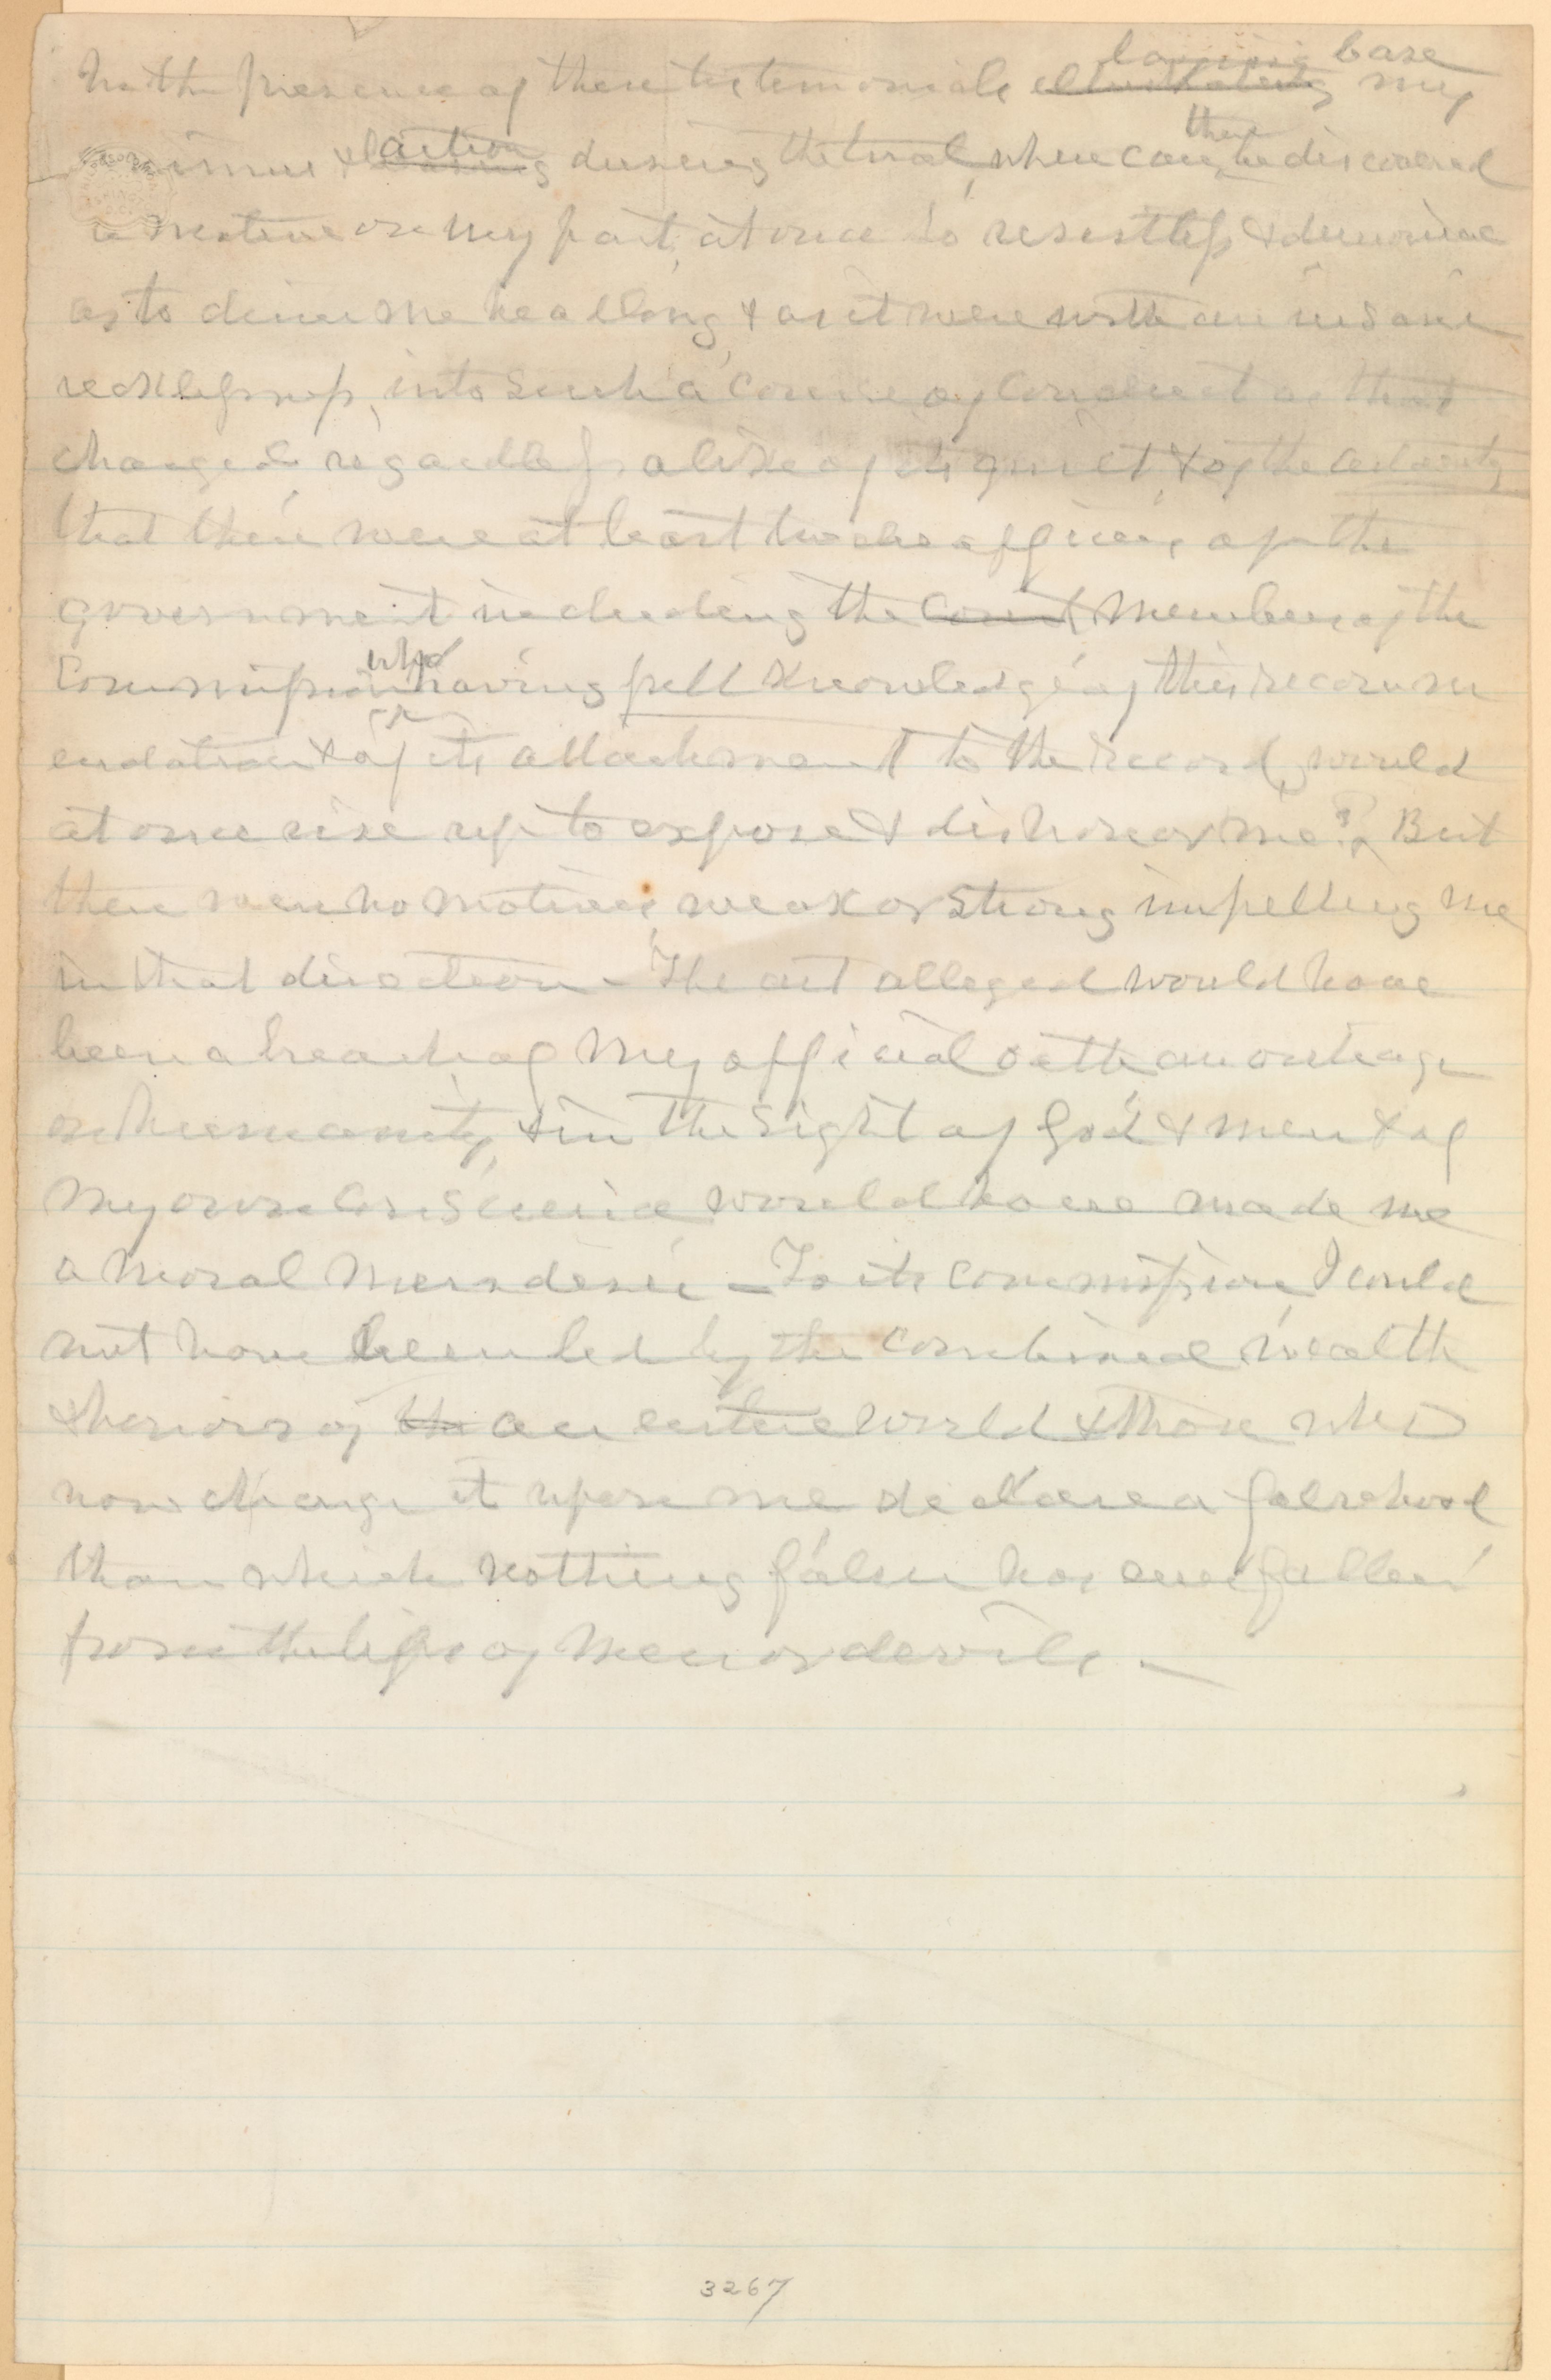 In the presence of these testimonials laying bare illustrating my
animus & action bearing during the trial, where can there be discovered
a motive on my part, at once so resistless & demoniac
as to drive me headlong, & as it were with an insane
recklessness, into such a course of conduct as that
charged, regardless alike of its guilt, & of the certainty
that there were at least twelve officers of the
government including the Court members of the
Commission who having full knowledge of this recomm
endation & of its attachment to the record, would
at once rise up to expose & dishonor me? But
there were no motives, weak or strong impelling me
in that direction - The act alleged would have
been a breach of my official oath an outrage
on humanity, & in the sight of God & men & of
my own conscience would have made me
a moral murderer - To its commission I could
not have been led by the combined wealth
& honors of the an entire world & those who
now charge it upon me declare a falsehood
than which nothing falser has ever fallen
from the lips of men or devils. -
3267